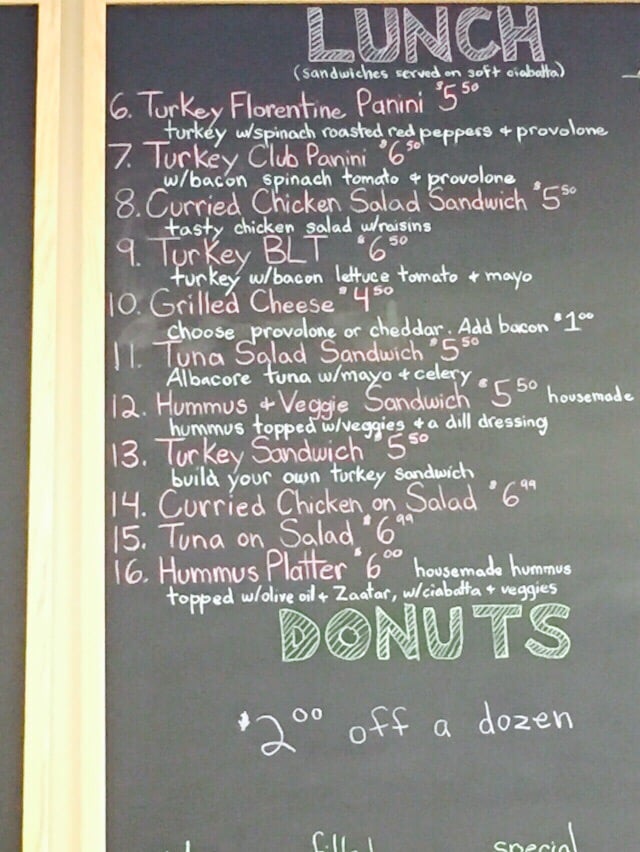 LUNCH
(sandwiches served on soft ciabatta)
6. Turkey Florentine Panini $5.50
turkey w/spinach roasted red peppers + provolone
7. Turkey Club Panini $6.50
w/bacon spinach tomato + provolone
8. Curried Chicken Salad Sandwich $5.50
tasty chicken salad w/raisins
9. Turkey BLT $6.50
turkey w/bacon lettuce tomato + mayo
10. Grilled Cheese $4.50
choose provolone or cheddar. Add bacon $1.00
11. Tuna Salad Sandwich $5.50
Albacore tuna w/mayo + celery
12. Hummus + Veggie Sandwich $5.50 housemade
hummus topped w/veggies + a dill dressing
13. Turkey Sandwich $5.50
build your own turkey sandwich
14. Curried Chicken on Salad $6.99
15. Tuna on Salad $6.99
16. Hummus Platter $6.00 housemade hummus
topped w/olive oil + Zaatar, w/ciabatta + veggies
DONUTS
$2.00 off a dozen
filled special